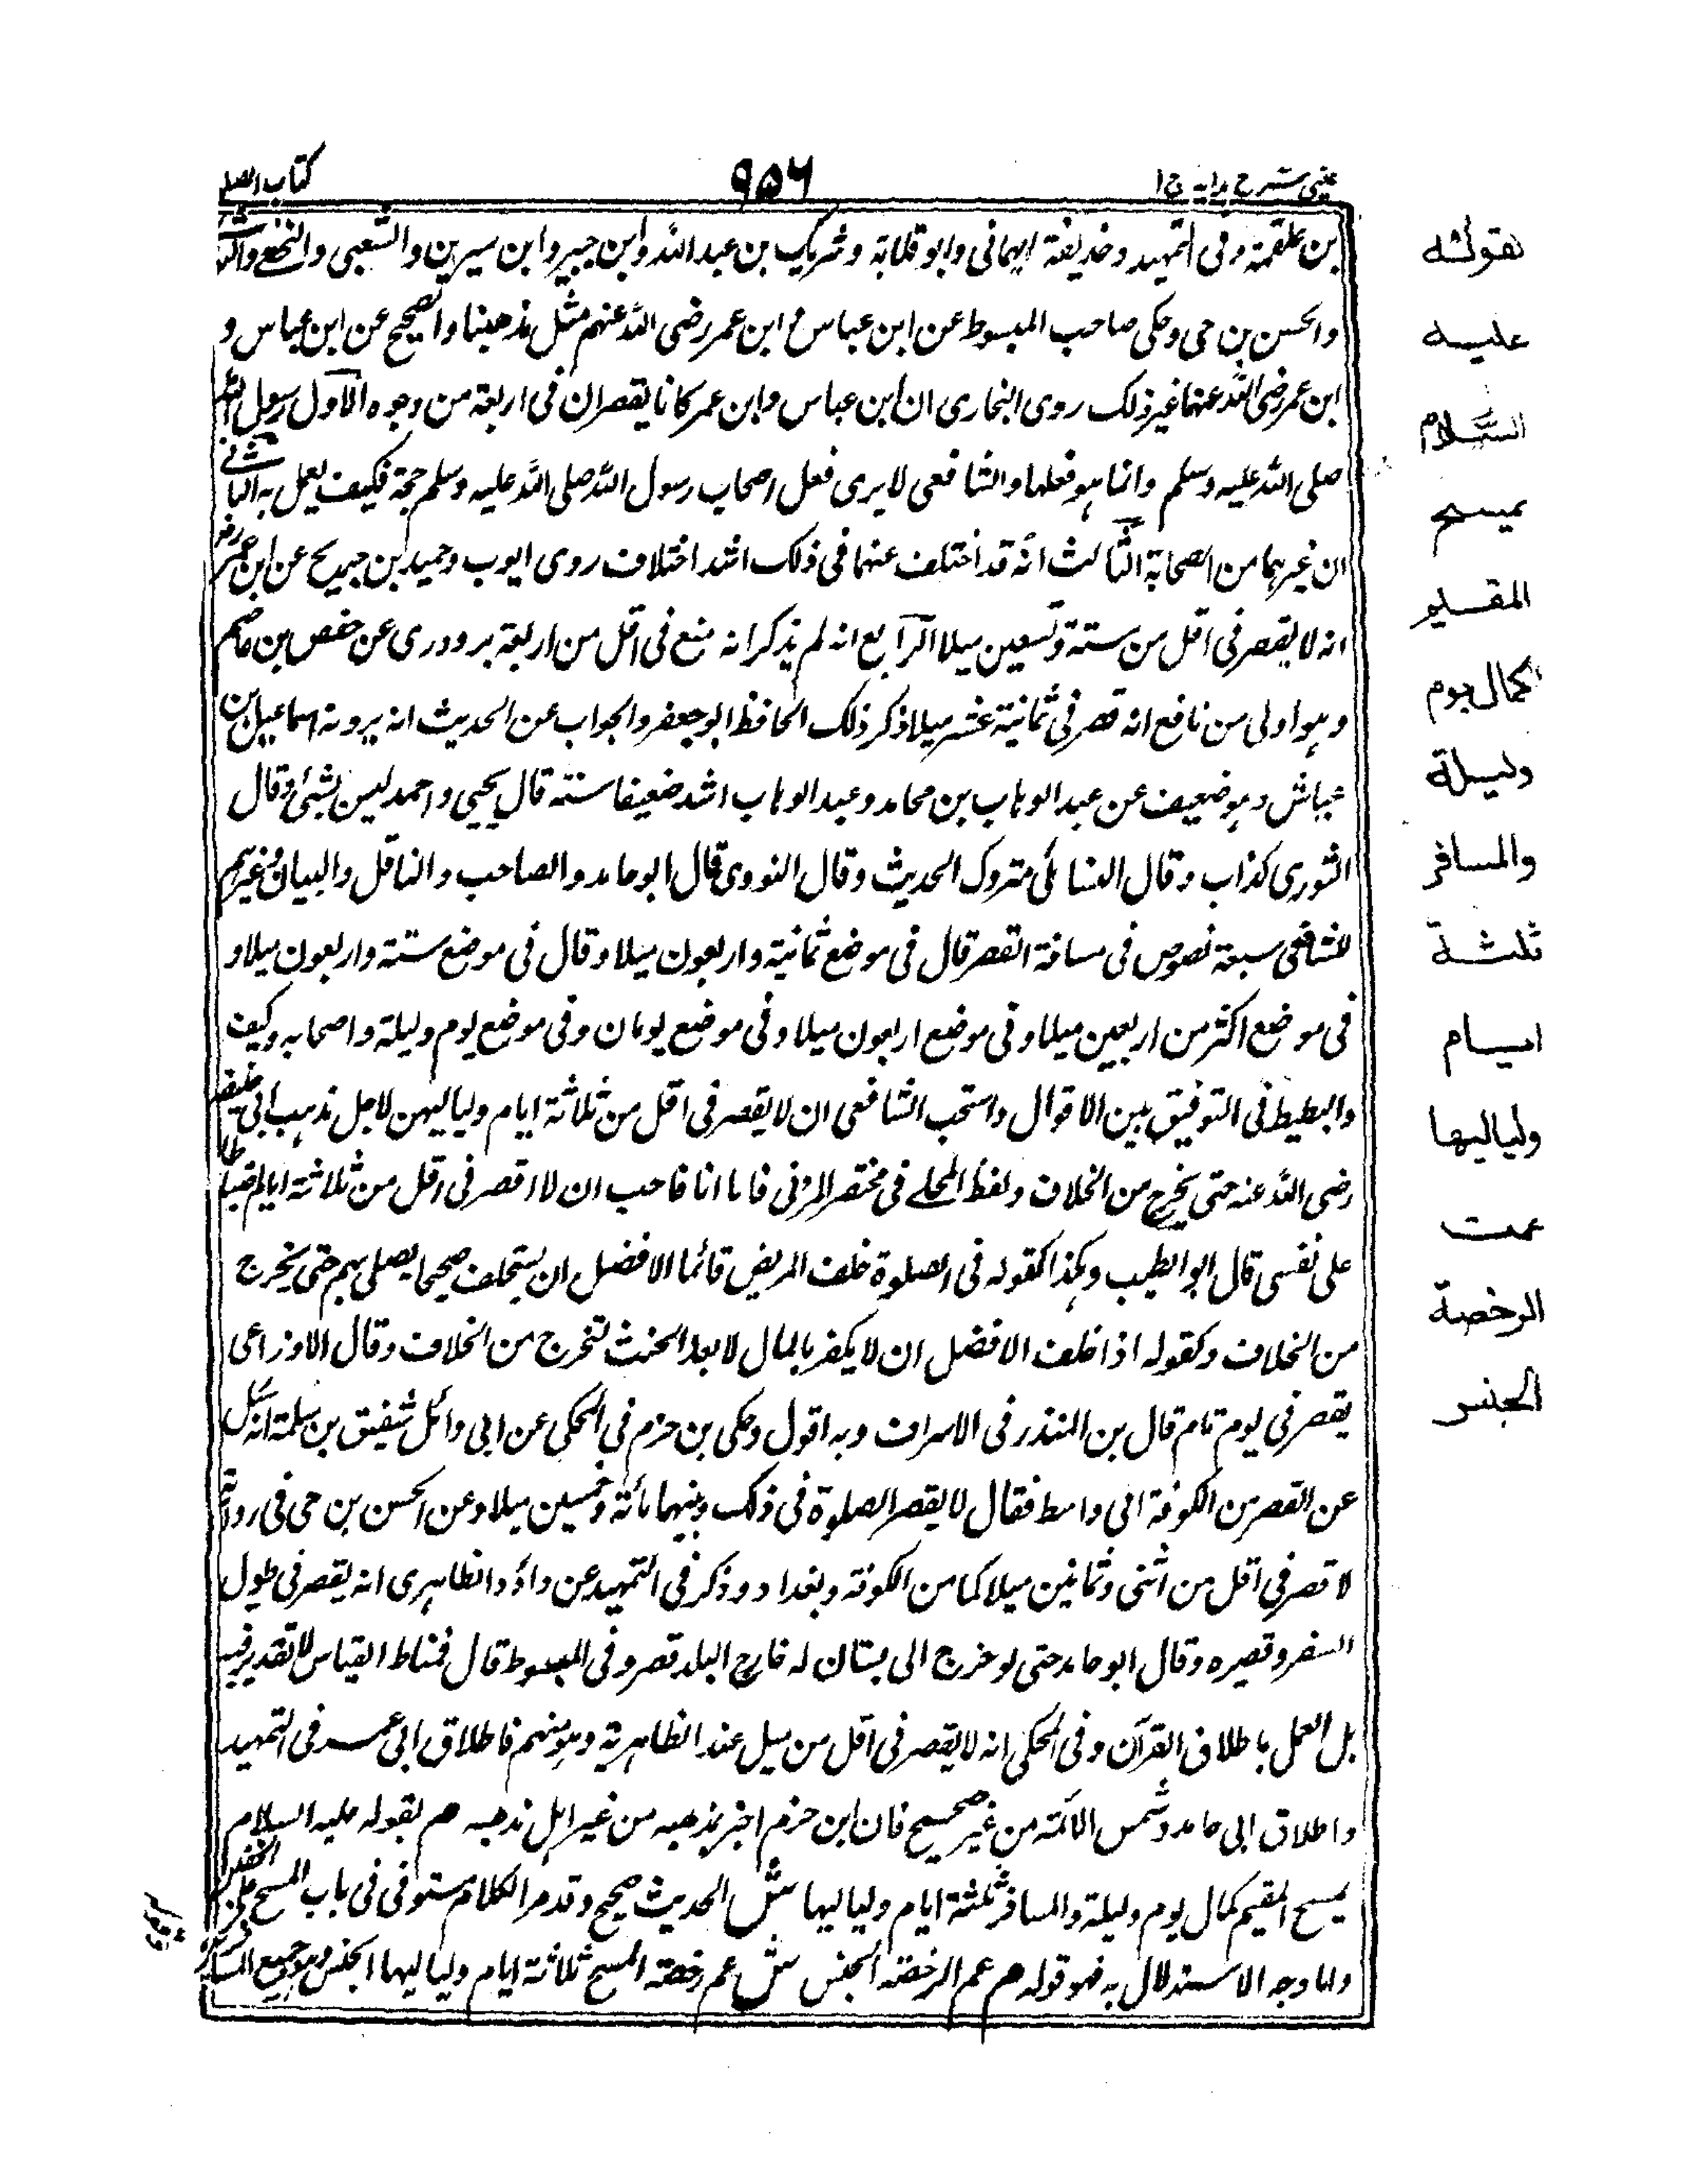 عینی شرح ہدایہ ج ا
٩٥٦
کتاب الصلو
بن علقمة وفى التمهيد وحذيفة اليمانى وابو قلابة وشريك بن عبد الله وابن جبير وابن سيرين والشعبى والنخعى
والحسن بن حى وحكى صاحب المبسوط عن ابن عباس و ابن عمر رضى الله عنهم مثل مذهبنا والصحيح عن ابن عباس و
ابن عمر رضى الله عنهما غير ذلك روى البخارى ان ابن عباس وابن عمر كانا يقصران فى اربعة من وجوه الاول رسول الله
صلى الله عليه وسلم وانما هو فعلهما والشافعى لا يرى فعل اصحاب رسول الله صلى الله عليه وسلم حجة فكيف يعمل به الثانى
ان غيرهما من الصحابة الثالث انه قد اختلف عنهما فى ذلك اشد اختلاف روى ايوب وحميد بن جريح عن ابن عمر رض
انه لا يقصر فى اقل من ستة وتسعين ميلا الرابع انه لم يذكر انه منع فى اقل من اربعة برد وروى عن حفص بن عاصم
وهو اولى من نافع انه قصر فى ثمانية عشر ميلا ذكر ذلك الحافظ ابو جعفر والجواب عن الحديث انه يرويه اسماعيل بن
عياش وهو ضعيف عن عبد الوهاب بن مجاهد وعبد الوهاب اشد ضعيفا سنته قال يحيى واحمد ليس بشئ وقال
الثورى كذاب وقال النسائى متروك الحديث وقال النووى قال ابو حامد والصاحب والناقل والبيان وغيرهم
للشافعى سبعة نصوص فى مسافة القصر قال فى موضع ثمانية واربعون ميلا وقال فى موضع ستة واربعون ميلا و
فى موضع اكثر من اربعين ميلا وفى موضع اربعون ميلا وفى موضع يومان وفى موضع يوم وليلة واصحابه وكيف
والبطيط فى التوفيق بين الاقوال واستحب الشافعى ان لا يقصر فى اقل من ثلاثة ايام ولياليهن لاجل مذهب ابى حنيفة
رضى الله عنه حتى يخرج من الخلاف ولفظ المحلے فى مختصر المزنى فاما انا فاحب ان لا اقصر فى اقل من ثلاثة ايام احتياطا
على نفسى قال ابو الطيب وهكذا كقوله فى الصلوة خلف المريض قائما الافضل ان يستخلف صحيحا يصلى بهم حتى يخرج
من الخلاف وكقوله اذا حلف الافضل ان لا يكفر بالمال لا بعد الحنث لتخرج من الخلاف وقال الاوزاعى
يقصر فى يوم تام قال بن المنذر فى الاسراف وبه اقول وحكى بن حزم فى المحكى عن ابى وائل شقيق بن سلمة انه سئل
عن القصر من الكوفة الى واسط فقال لا يقصر الصلوة فى ذلك وبينهما مائة وخمسين ميلا وعن الحسن بن حى فى رواية
لا قصر فى اقل من اثنى وثمانين ميلا كما من الكوفة وبغداد وذكر فى التمهيد عن داؤد الظاهرى انه يقصر فى طول
السفر وقصيره وقال ابو حامد حتى لو خرج الى بستان له خارج البلد قصر وفى المبسوط قال فمناط القياس لا تقدير فيه
بل العمل باطلاق القرآن وفى المحكى انه لا يقصر فى اقل من ميل عند الظاهرية وهو منهم فاطلاق ابى عمر فى التمهيد
واطلاق ابى حامد وشمس الائمة من غير صحيح فان ابن حزم اخبر بمذهبه من غير اهل مذهبه هم لقوله عليه السلام
يمسح المقيم كمال يوم وليلة والمسافر ثلثة ايام ولياليها ش الحديث صحيح وقد مر الكلام مستوفى فى باب المسح على الخفين
واما وجه الاستدلال به فهو قوله هم عم الرخصة الجنس ش عم رخصة المسح ثلاثة ايام ولياليها الجنس وهو جميع
لقوله
عليه
السلام
يمسح
المقيم
كمال يوم
وليلة
والمسافر
ثلثة
ايام
ولياليها
عمت
الرخصة
الجنس